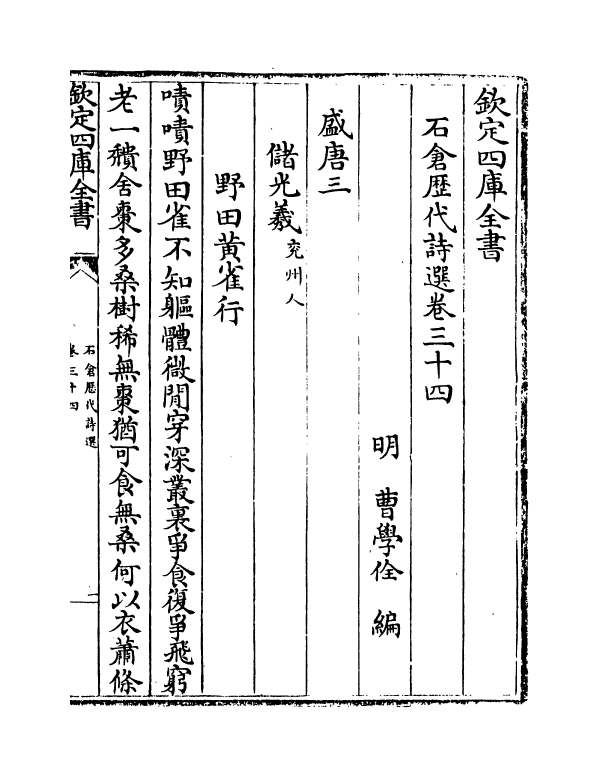 欽定四庫全書
石倉歴代詩選卷三十四
明 曹學佺 編
盛唐三
儲光羲兖州人
野田黄雀行
嘖嘖野田雀不知軀體微閒穿深叢裏爭食復爭飛窮
老一穨舍棗多桑樹稀無棗猶可食無桑何以衣蕭條
欽定四庫全書
石倉歴代詩選
卷三十四
一